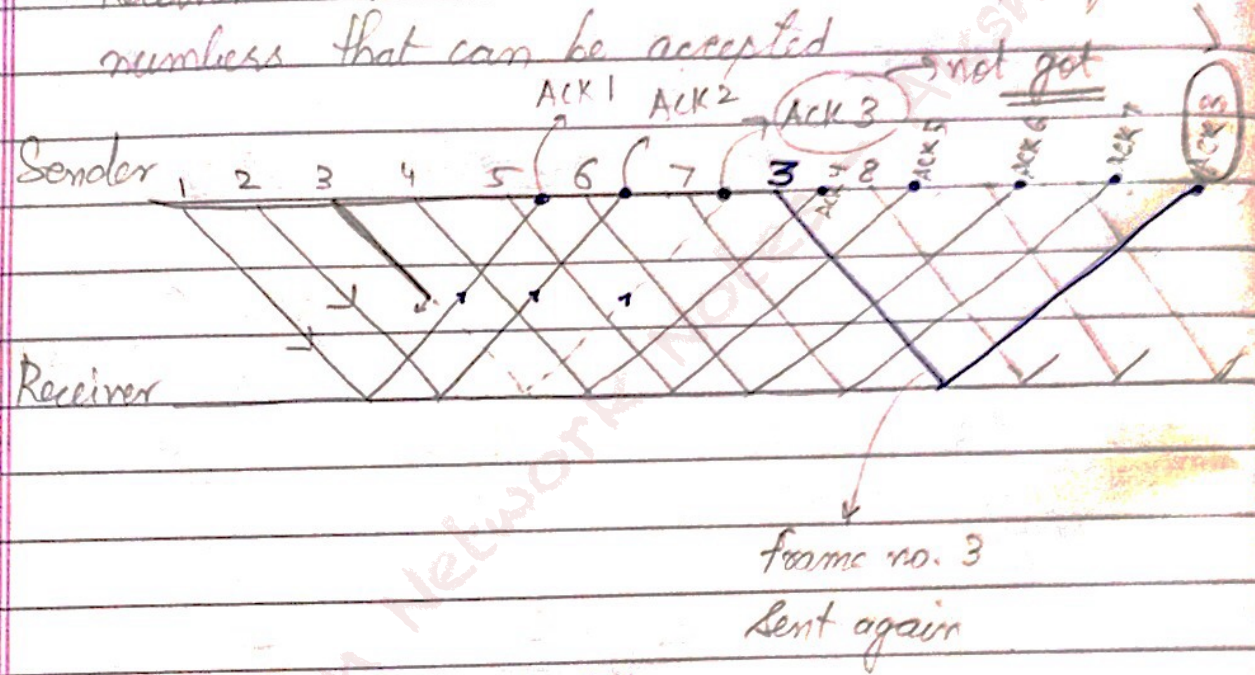 numbess that can be accepted
ACK 1 ACK 2 ACK 3 not got
Sender 1 2 3 4 5 6 7 3 ACK 4 8 ACK 5 ACK 6 ACK 7 ACK 3
Receiver
frame no. 3
Sent again
Network Notes